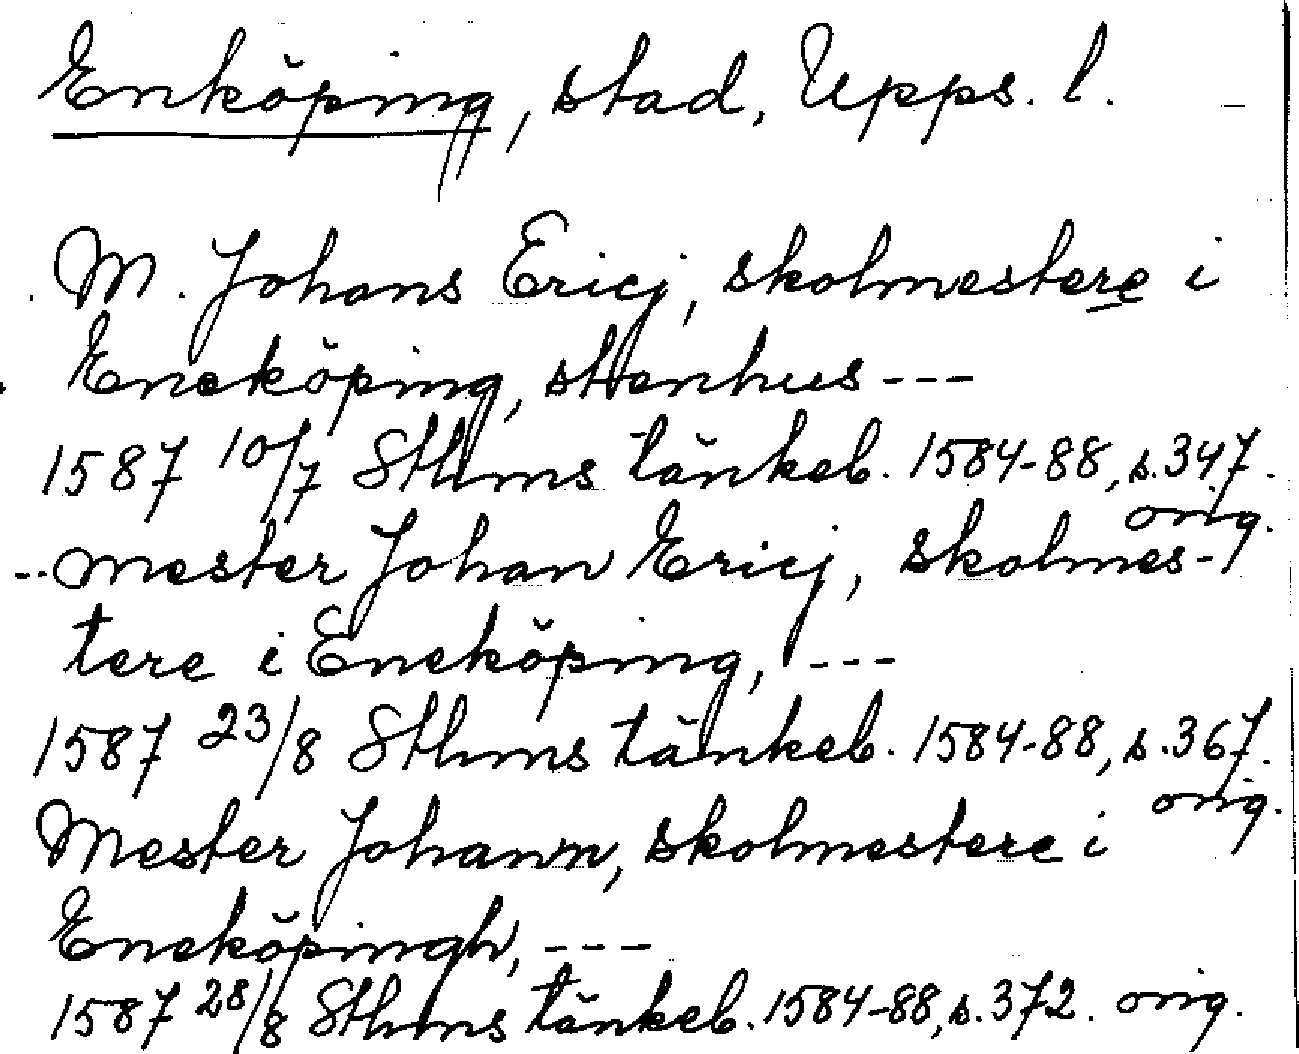 Enköping, stad, Upps. l.
M. Johans Ericj, skolmestere i
Eneköping, stenhus ---
1587 10/7 Sthms tänkeb. 1584-88, s. 347.
orig.
--mester Johan Ericj, skolmes-
tere i Eneköping, ---
1587 23/8 Sthms tänkeb. 1584-88, s. 367.
orig.
Mester Johann, skolmestere i
Eneköpingh, ---
1587 28/8 Sthms tänkeb. 1584-88, s. 372. orig.